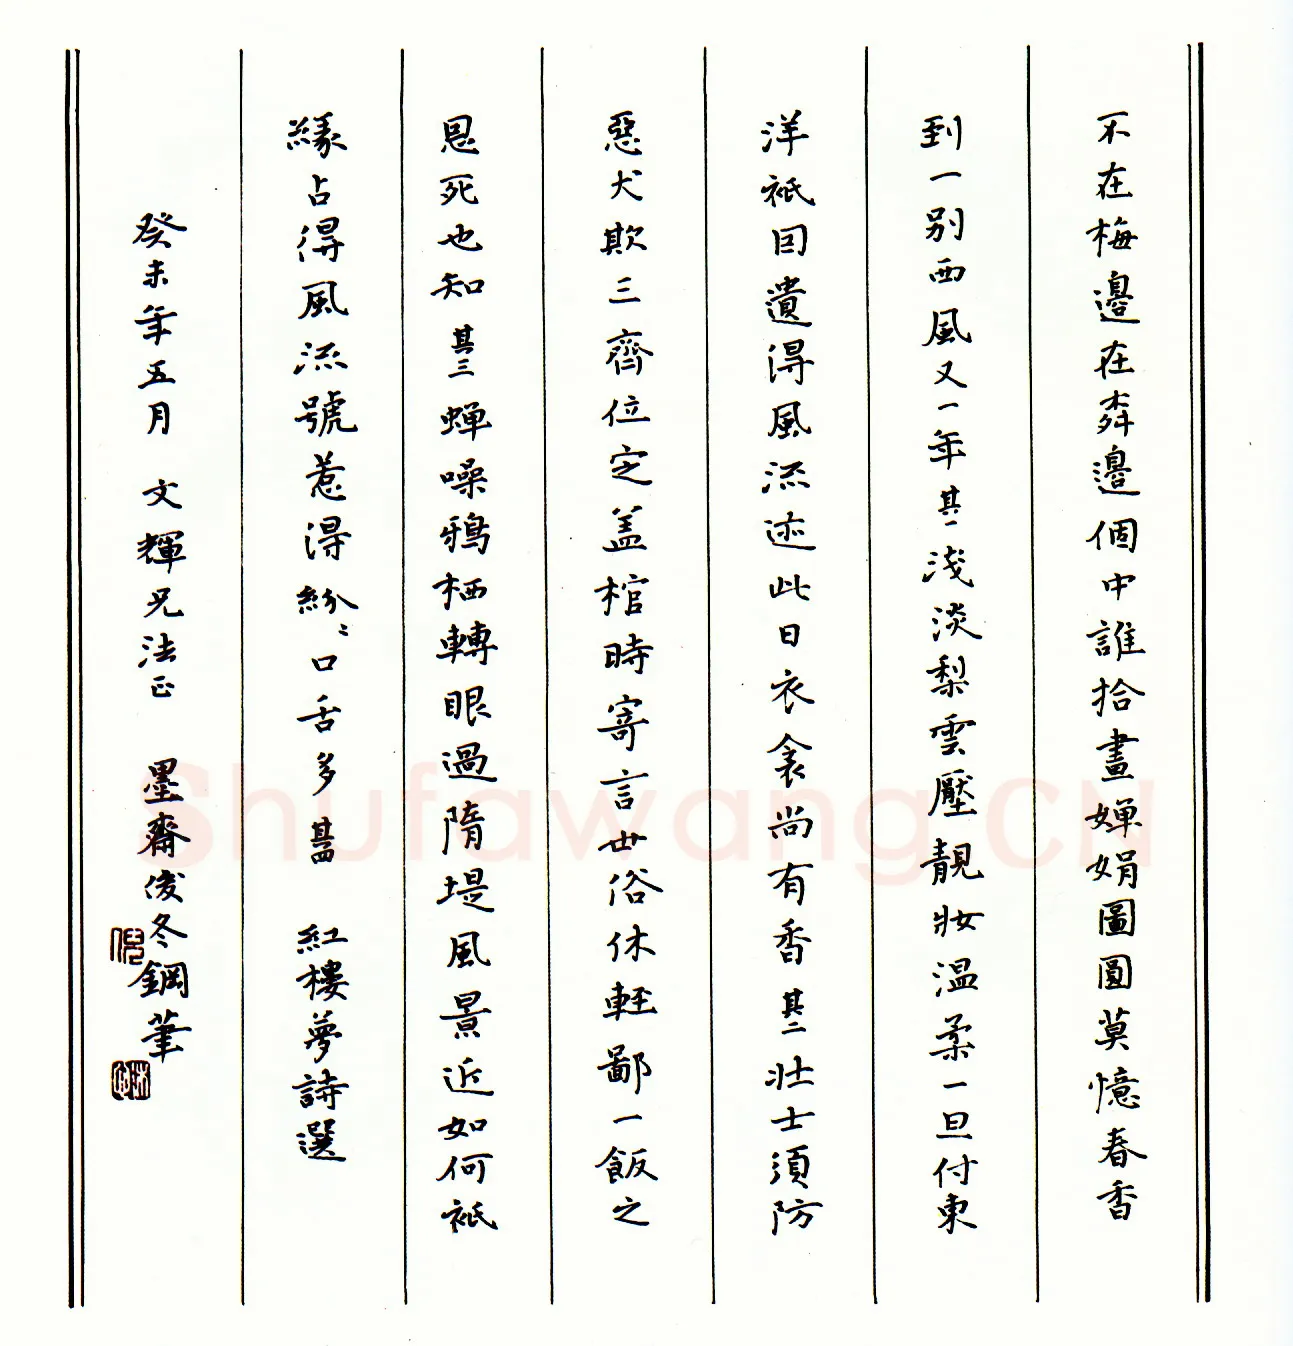 不在梅邊在柳邊個中誰拾畫嬋娟圖圓莫憶春香
到一別西風又一年 其一 淺淡梨雲壓靚妝温柔一旦付東
洋祇因遺得風流迹此日衣衾尚有香 其二 壯士須防
惡犬欺三齊位定盖棺時寄言世俗休輕鄙一飯之
恩死也知 其三 蟬噪鴉栖轉眼過隋堤風景近如何祇
緣占得風流號惹得紛〻口舌多 其四 紅樓夢詩選
癸未年五月 文輝兄法正 墨齋俊冬鋼筆
倪
Shufawang.CN